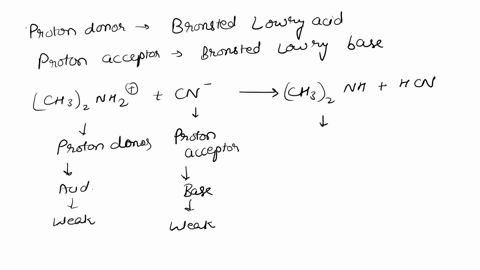 Proton donor → Bronsted Lowry acid
Proton acceptor → Bronsted Lowry base
(CH3)2 NH2⊕ + CN⁻ ⟶ (CH3)2 NH + HCN
↓ ↓ ↓
Proton donor Proton acceptor
↓ ↓
Acid. Base
↓ ↓
Weak Weak